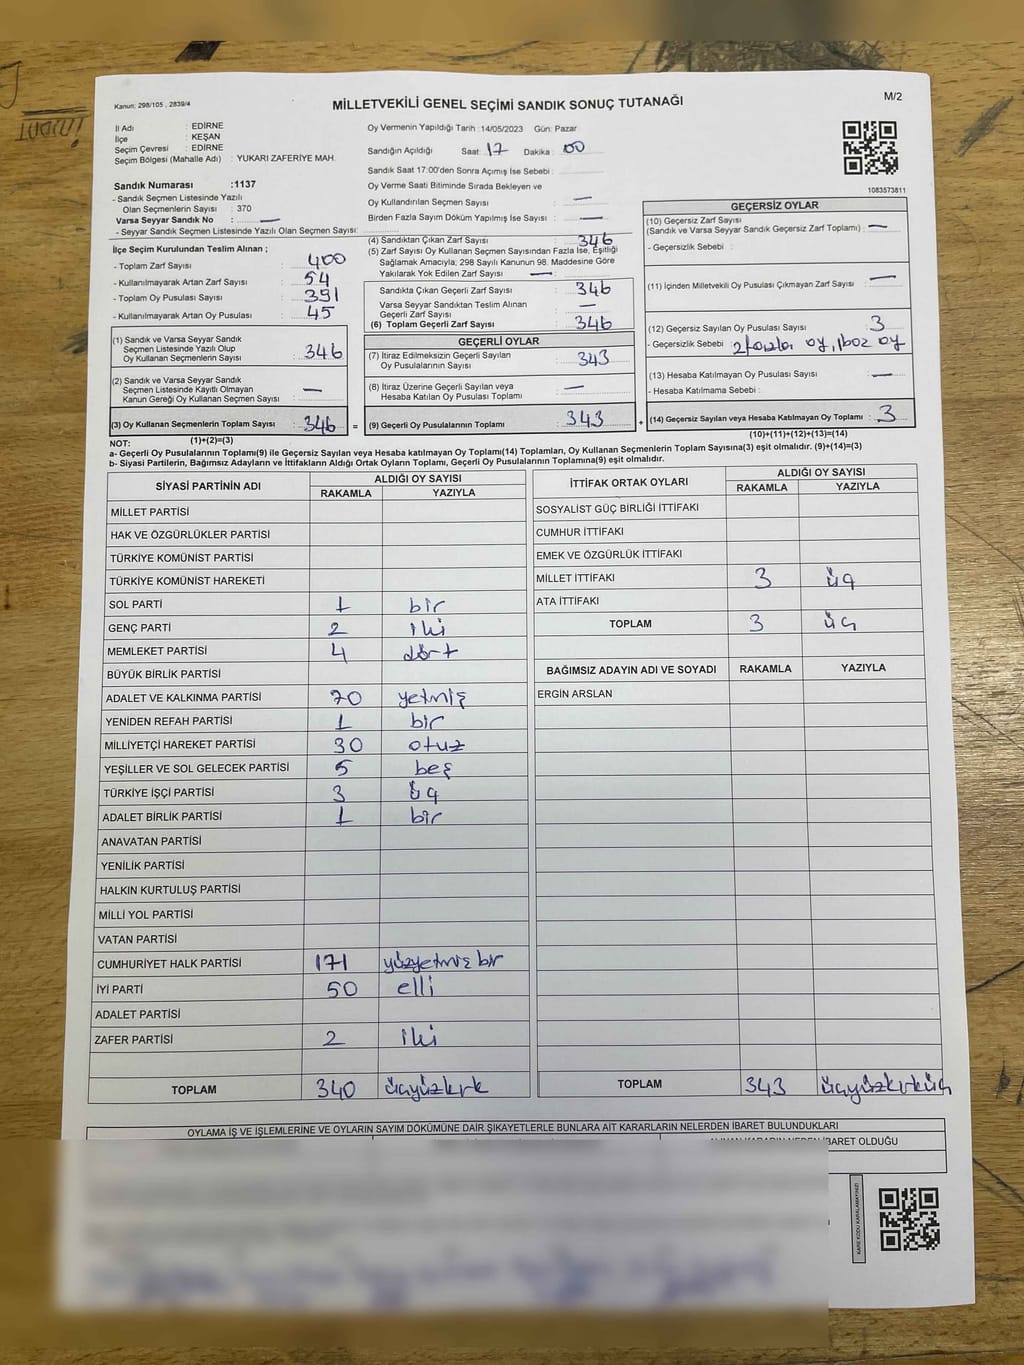 Kanun: 298/105 , 2839/4
MİLLETVEKİLİ GENEL SEÇİMİ SANDIK SONUÇ TUTANAĞI
M/2
İl Adı : EDİRNE
İlçe : KEŞAN
Seçim Çevresi : EDİRNE
Seçim Bölgesi (Mahalle Adı) : YUKARI ZAFERİYE MAH.
Sandık Numarası :1137
- Sandık Seçmen Listesinde Yazılı
Olan Seçmenlerin Sayısı : 370
Varsa Seyyar Sandık No : —
- Seyyar Sandık Seçmen Listesinde Yazılı Olan Seçmen Sayısı:
Oy Vermenin Yapıldığı Tarih :14/05/2023 Gün: Pazar
Sandığın Açıldığı Saat: 17 Dakika : 00
Sandık Saat 17:00'den Sonra Açımış İse Sebebi :
Oy Verme Saati Bitiminde Sırada Bekleyen ve
Oy Kullandırılan Seçmen Sayısı : —
Birden Fazla Sayım Döküm Yapılmış İse Sayısı : —
1083573811
İlçe Seçim Kurulundan Teslim Alınan ;
- Toplam Zarf Sayısı : 400
- Kullanılmayarak Artan Zarf Sayısı : 54
- Toplam Oy Pusulası Sayısı : 391
- Kullanılmayarak Artan Oy Pusulası : 45
(1) Sandık ve Varsa Seyyar Sandık
Seçmen Listesinde Yazılı Olup
Oy Kullanan Seçmenlerin Sayısı : 346
(2) Sandık ve Varsa Seyyar Sandık
Seçmen Listesinde Kayıtlı Olmayan
Kanun Gereği Oy Kullanan Seçmen Sayısı : —
(3) Oy Kullanan Seçmenlerin Toplam Sayısı : 346
(4) Sandıktan Çıkan Zarf Sayısı : 346
(5) Zarf Sayısı Oy Kullanan Seçmen Sayısından Fazla İse, Eşitliği
Sağlamak Amacıyla; 298 Sayılı Kanunun 98. Maddesine Göre
Yakılarak Yok Edilen Zarf Sayısı : —
Sandıkta Çıkan Geçerli Zarf Sayısı : 346
Varsa Seyyar Sandıktan Teslim Alınan
Geçerli Zarf Sayısı : —
(6) Toplam Geçerli Zarf Sayısı : 346
GEÇERLİ OYLAR
(7) İtiraz Edilmeksizin Geçerli Sayılan
Oy Pusulalarının Sayısı : 343
(8) İtiraz Üzerine Geçerli Sayılan veya
Hesaba Katılan Oy Pusulası Toplamı : —
= (9) Geçerli Oy Pusulalarının Toplamı : 343 +
GEÇERSİZ OYLAR
(10) Geçersiz Zarf Sayısı
(Sandık ve Varsa Seyyar Sandık Geçersiz Zarf Toplamı) : —
- Geçersizlik Sebebi :
(11) İçinden Milletvekili Oy Pusulası Çıkmayan Zarf Sayısı : —
(12) Geçersiz Sayılan Oy Pusulası Sayısı : 3
- Geçersizlik Sebebi : 2 fazla oy, 1 boz oy
(13) Hesaba Katılmayan Oy Pusulası Sayısı : —
- Hesaba Katılmama Sebebi :
(14) Geçersiz Sayılan veya Hesaba Katılmayan Oy Toplamı : 3
NOT: (1)+(2)=(3)
(10)+(11)+(12)+(13)=(14)
a- Geçerli Oy Pusulasının Toplamı(9) ile Geçersiz Sayılan veya Hesaba katılmayan Oy Toplamı(14) Toplamları, Oy Kullanan Seçmenlerin Toplam Sayısına(3) eşit olmalıdır. (9)+(14)=(3)
b- Siyasi Partilerin, Bağımsız Adayların ve İttifakların Aldığı Ortak Oyların Toplamı, Geçerli Oy Pusulalarının Toplamına(9) eşit olmalıdır.
SİYASİ PARTİNİN ADI ALDIĞI OY SAYISI
RAKAMLA YAZIYLA
MİLLET PARTİSİ
HAK VE ÖZGÜRLÜKLER PARTİSİ
TÜRKİYE KOMÜNİST PARTİSİ
TÜRKİYE KOMÜNİST HAREKETİ
SOL PARTİ 1 bir
GENÇ PARTİ 2 iki
MEMLEKET PARTİSİ 4 dört
BÜYÜK BİRLİK PARTİSİ
ADALET VE KALKINMA PARTİSİ 70 yetmiş
YENİDEN REFAH PARTİSİ 1 bir
MİLLİYETÇİ HAREKET PARTİSİ 30 otuz
YEŞİLLER VE SOL GELECEK PARTİSİ 5 beş
TÜRKİYE İŞÇİ PARTİSİ 3 üç
ADALET BİRLİK PARTİSİ 1 bir
ANAVATAN PARTİSİ
YENİLİK PARTİSİ
HALKIN KURTULUŞ PARTİSİ
MİLLİ YOL PARTİSİ
VATAN PARTİSİ
CUMHURİYET HALK PARTİSİ 171 yüzyetmiş bir
İYİ PARTİ 50 elli
ADALET PARTİSİ
ZAFER PARTİSİ 2 iki
TOPLAM 340 üçyüzkırk
İTTİFAK ORTAK OYLARI ALDIĞI OY SAYISI
RAKAMLA YAZIYLA
SOSYALİST GÜÇ BİRLİĞİ İTTİFAKI
CUMHUR İTTİFAKI
EMEK VE ÖZGÜRLÜK İTTİFAKI
MİLLET İTTİFAKI 3 üç
ATA İTTİFAKI
TOPLAM 3 üç
BAĞIMSIZ ADAYIN ADI VE SOYADI RAKAMLA YAZIYLA
ERGİN ARSLAN
TOPLAM 343 üçyüzkırküç
OYLAMA İŞ VE İŞLEMLERİNE VE OYLARIN SAYIM DÖKÜMÜNE DAİR ŞİKAYETLERLE BUNLARA AİT KARARLARIN NELERDEN İBARET BULUNDUKLARI
İBARET OLDUĞU
KARE KODU KARALAMAYINIZ!